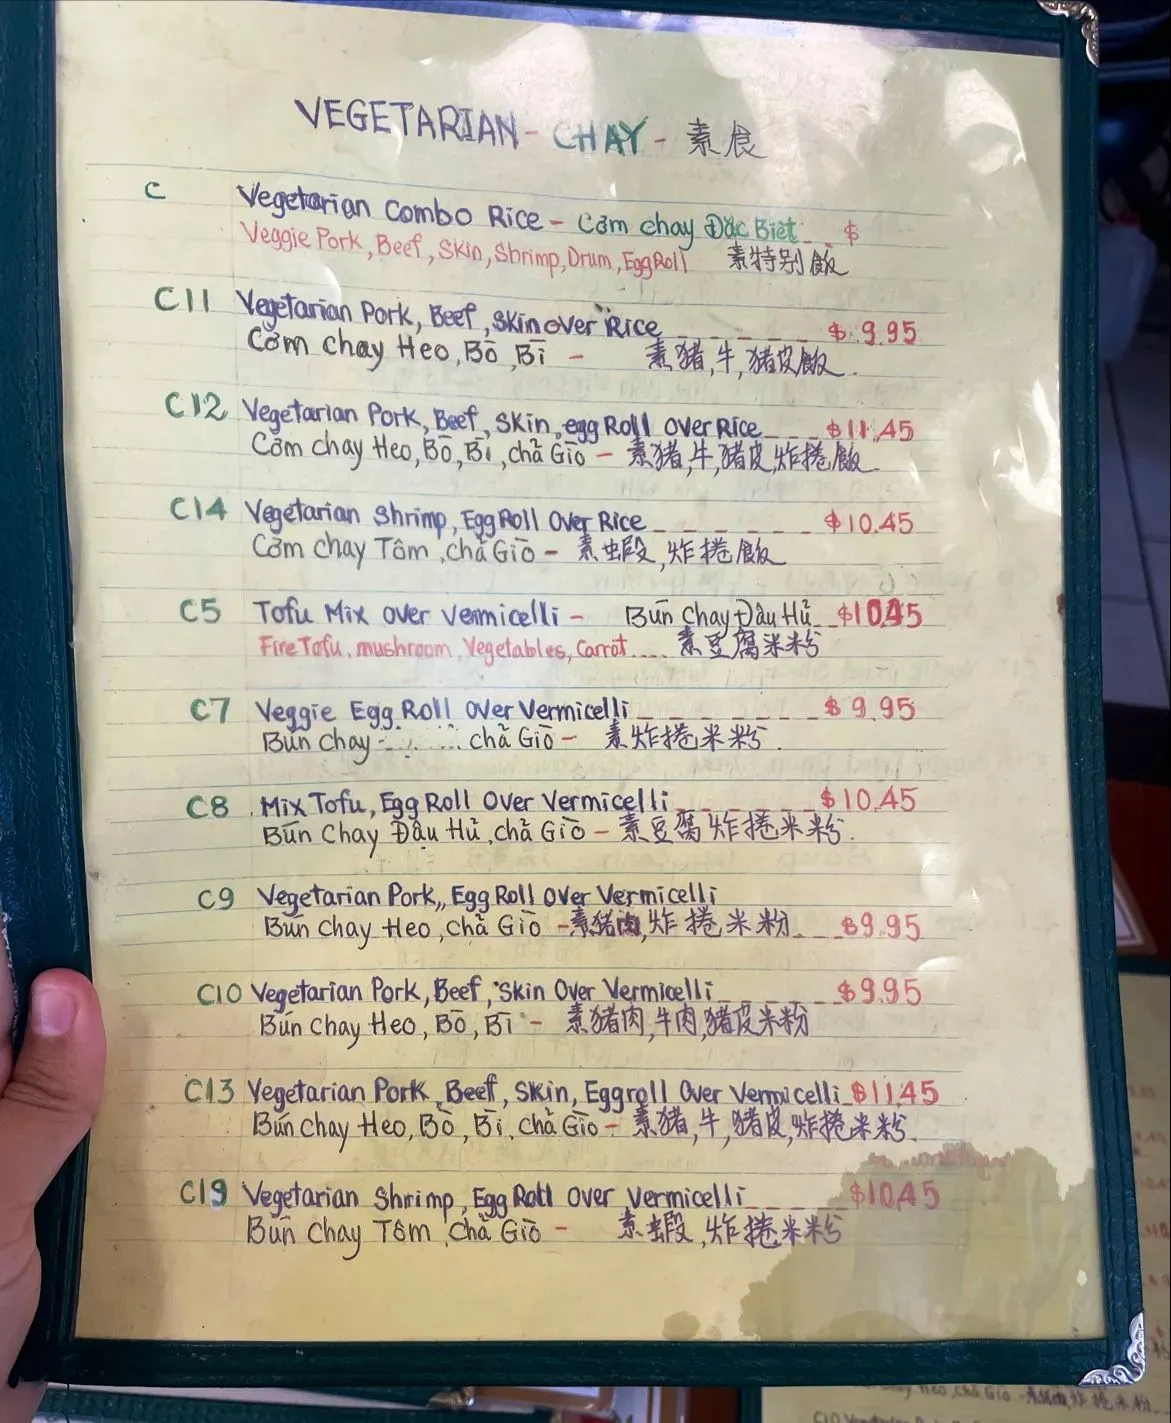 VEGETARIAN - CHAY - 素食
C Vegetarian Combo Rice - Cơm chay Đặc Biêt _ _ $
Veggie Pork, Beef, Skin, Shrimp, Drum, Egg Roll 素特别飯
C11 Vegetarian Pork, Beef, Skin over Rice _ _ _ _ _ $ 9.95
Cơm chay Heo, Bò, Bì - 素猪,牛,猪皮飯.
C12 Vegetarian Pork, Beef, Skin, egg Roll Over Rice _ _ _ $11.45
Cơm chay Heo, Bò, Bì, chả Giò - 素猪,牛,猪皮,炸捲飯
C14 Vegetarian Shrimp, Egg Roll Over Rice _ _ _ _ _ _ $10.45
Cơm chay Tôm, chả Giò - 素蝦,炸捲飯
C5 Tofu Mix over Vermicelli - Bún Chay Đâu Hủ _ $10.45
Fire Tofu, mushroom, Vegetables, Carrot .... 素豆腐米粉
C7 Veggie Egg Roll Over Vermicelli _ _ _ _ _ _ _ $ 9.95
Bún Chay chả Giò - 素炸捲米粉.
C8 Mix Tofu, Egg Roll Over Vermicelli _ _ _ _ _ $10.45
Bún Chay Đậu Hủ, chả Giò - 素豆腐炸捲米粉.
C9 Vegetarian Pork,, Egg Roll Over Vermicelli
Bún Chay Heo, chả Giò - 素猪肉,炸捲米粉 _ _ $9.95
C10 Vegetarian Pork, Beef, Skin Over Vermicelli _ _ _ _ $9.95
Bún Chay Heo, Bò, Bì - 素猪肉,牛肉,猪皮米粉
C13 Vegetarian Pork, Beef, Skin, Eggroll Over Vermicelli _ $11.45
Bún Chay Heo, Bò, Bì, chả Giò - 素猪,牛,猪皮,炸捲米粉.
C19 Vegetarian Shrimp, Egg Roll Over Vermicelli _ _ _ _ $10.45
Bún Chay Tôm, Chả Giò - 素蝦,炸捲米粉